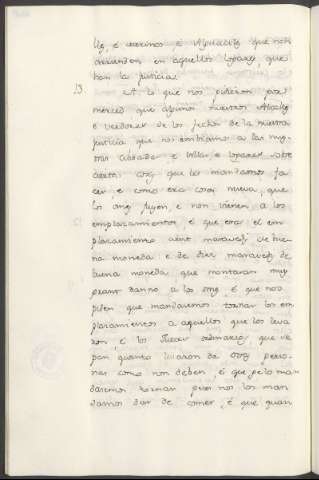 des, e merinos e Alguaciles que non
defiendan en aquellos logares que
han la justicia.
13 A lo que nos pidieron por
merced que algunos nuestros Alcalles
e veedores de los fechos de la nuestra
justicia que nos embiamos a las nuestras
Cibdades e Villas e logares sobre
ciertas cosas que les mandamos fa
cer e como era cosa nueva, que
los omes fuyen e non vienen a los
emplazamientos, e que era el em
plazamiento cient maravedis de bue
na moneda e de diez maravedis de
buena moneda que montavan muy
grant danno a los omes, e que nos
piden que mandaremos tornar los em
plazamientos a aquellos que los leva
ron e los fuesen
pan quanto levaron de otras perso
nas como non deben, e que gelo man
daremos tornar pues nos les man
damos dar de comer, e que quan